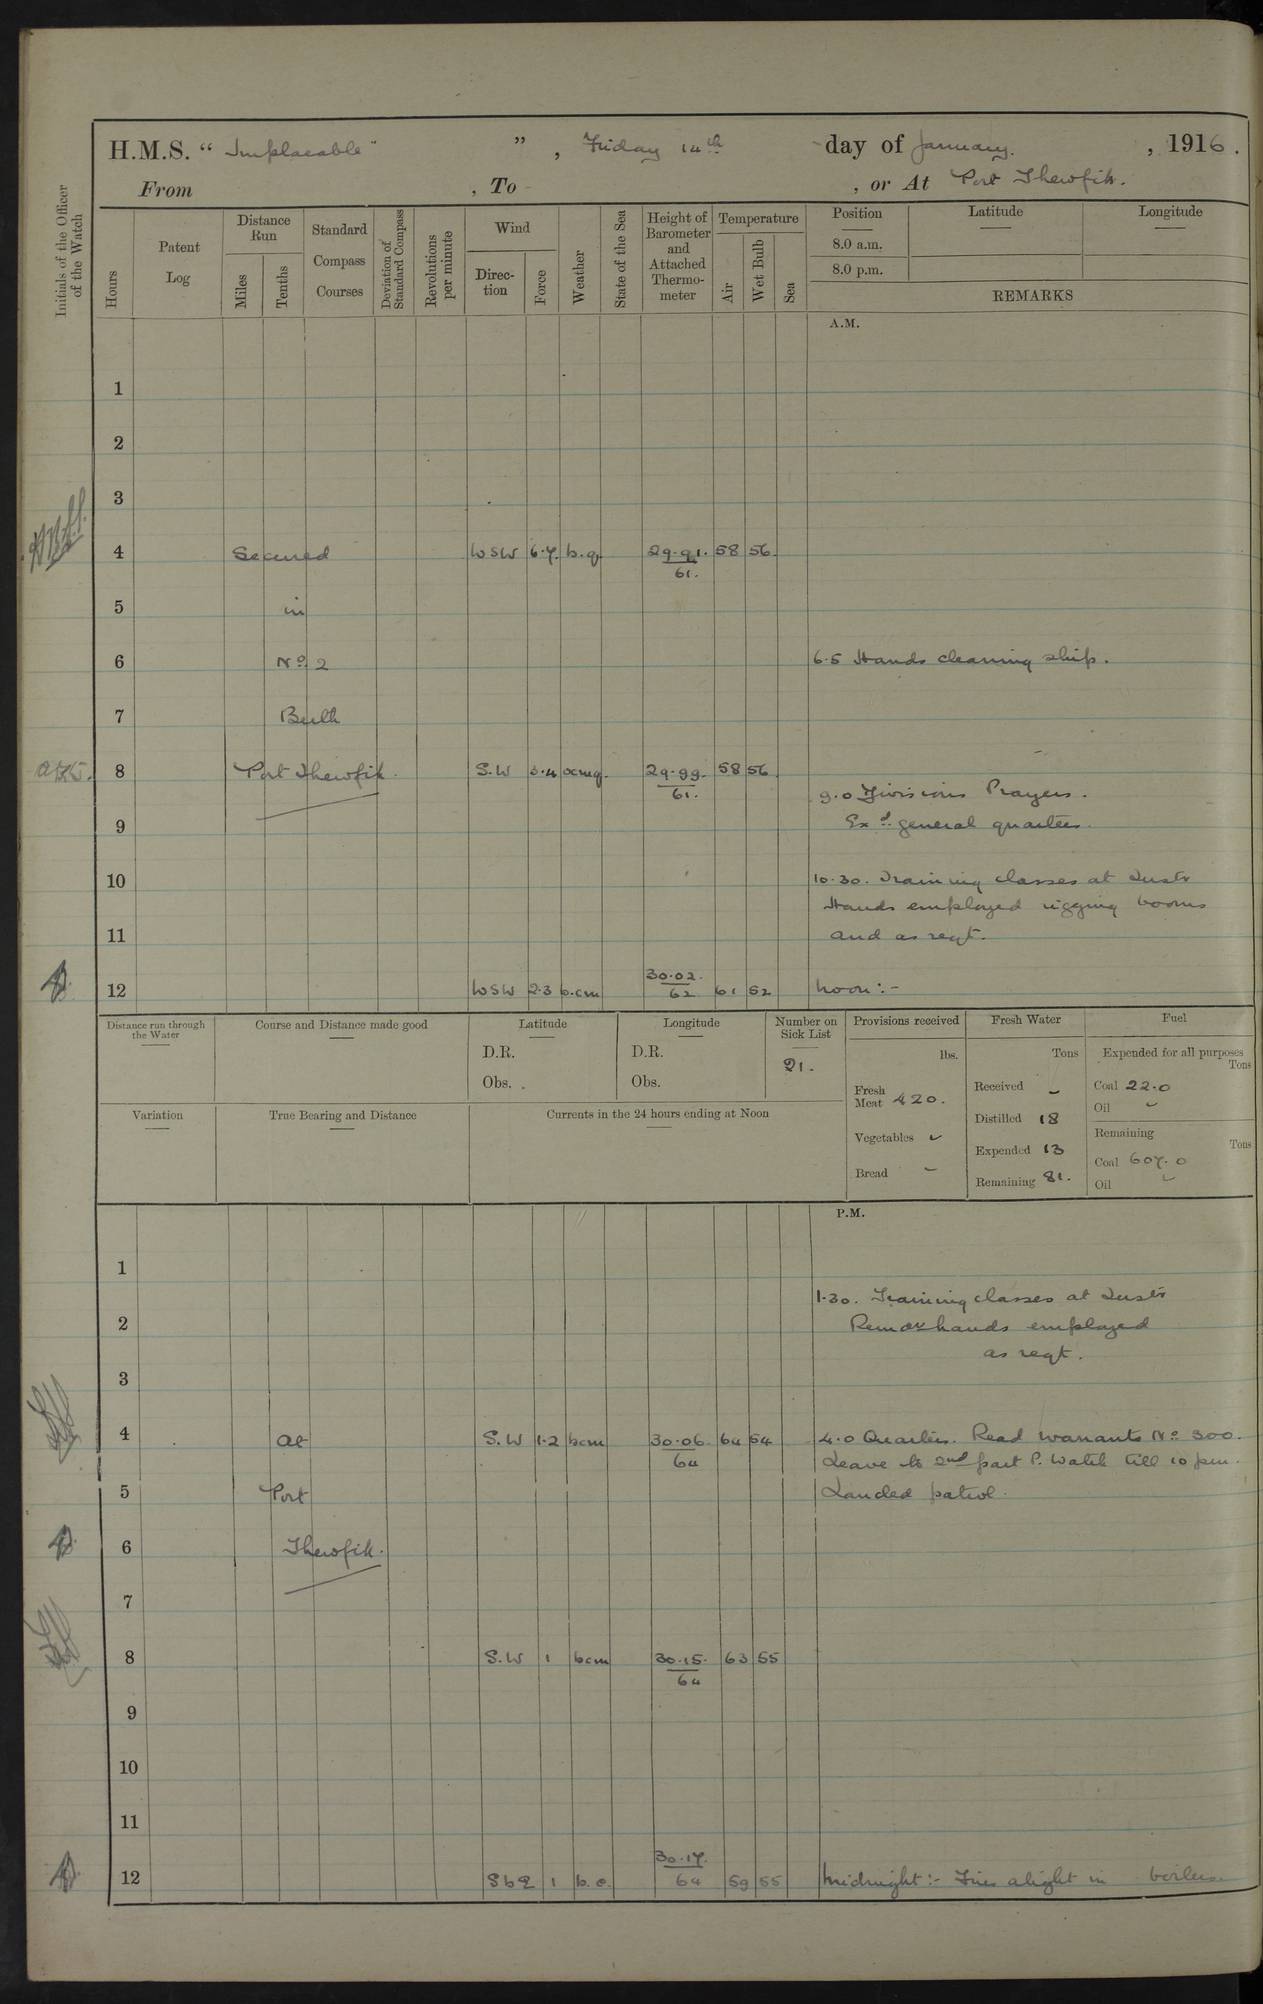 H.M.S. “ Implacable ” , Friday 14th day of January. , 1916.
From , To , or At Port Thewfik.
Initials of the Officer of the Watch
Hours
Patent Log
Distance Run
Miles
Tenths
Standard Compass Courses
Deviation of Standard Compass
Revolutions per minute
Wind
Direc-tion
Force
Weather
State of the Sea
Height of Barometer and Attached Thermo-meter
Temperature
Air
Wet Bulb
Sea
Position Latitude Longitude
8.0 a.m.
8.0 p.m.
REMARKS
A.M.
1
2
3
4 Secured WSW 6.7. b.q. 29.91. 58 56.
61.
5 in
6 No. 2 6.5 Hands cleaning ship.
7 Berth
8 Port Thewfik. S.W 3.4 ocmq. 29.99. 58 56
61.
9.0 Divisions Prayers.
9 Exd. general quarters.
10 10.30. Training classes at Instr
Hands employed rigging booms
11 and as reqt.
30.02.
12 WSW 2.3 b.cm 62 61 52 Noon:-
Distance run through the Water
Course and Distance made good
Latitude
D.R.
Obs.
Longitude
D.R.
Obs.
Number on Sick List
21.
Provisions received
lbs.
Fresh Meat 420.
Vegetables
Bread -
Fresh Water
Tons
Received -
Distilled 18
Expended 13
Remaining 81.
Fuel
Expended for all purposes
Tons
Coal 22.0
Oil
Remaining
Tons
Coal 607.0
Oil
Variation
True Bearing and Distance
Currents in the 24 hours ending at Noon
P.M.
1
1.30. Training classes at Instr
2 Remdr hands employed
as reqt.
3
4 At S.W 1.2 bcm 30.06. 64 54 4.0 Quarters. Read warrants No. 300.
64 Leave to 2nd part P. Watch till 10 pm.
5 Port Landed patrol.
6 Thewfik.
7
8 S.W 1 bcm 30.15. 63 55
64
9
10
11
30.17.
12 SbE 1 b.c. 64 59 55 Midnight:- Fires alight in boilers.